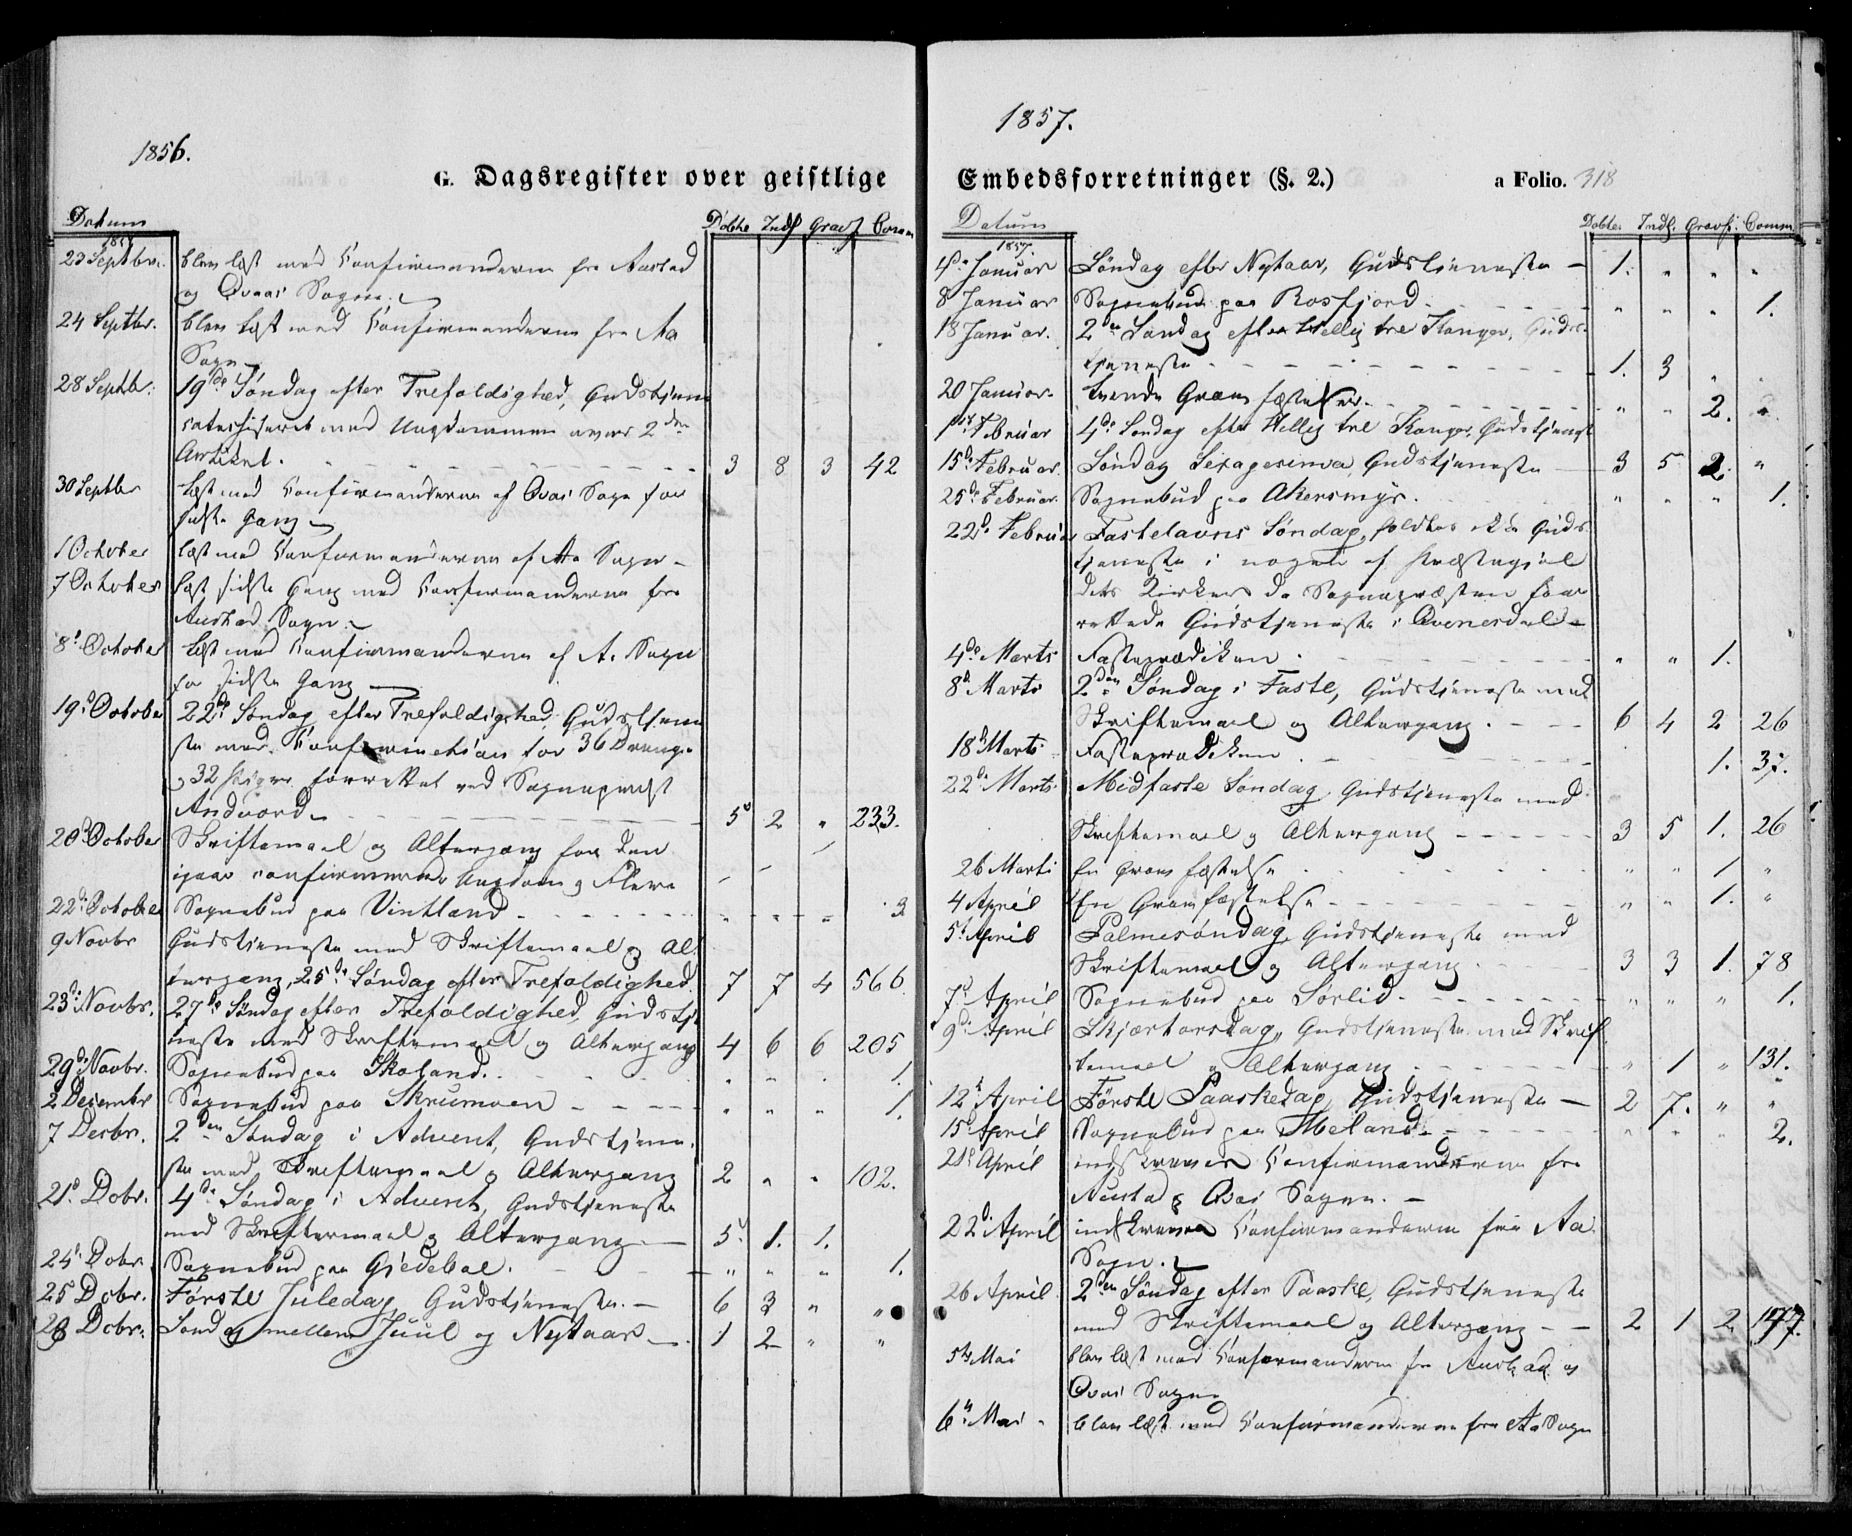 1856.
G. Dagsregister over geistlige
Datum Døbte Indl Gravf Comm
1856
23 Septbr. blev læst med Confirmanderne fra Austad
og Qvaas Sogne.
24 Septbr. blev læst med Confirmanderne fra Aa
Sogn
28 Septbr. 19de Søndag efter Trefoldighed, Gudstjeneste
catechiseret med Ungdommen over 2den
Artikel. 3 8 3 42
30 Septbr læst med Confirmanderne af Qvas Sogn for
sidste Gang
1 October læst med Confirmanderne af Aa Sogn
7 October læst sidste Gang med Confirmanderne fra
Austad Sogn.
8de October læst med Confirmanderne af Aa Sogn
for sidste Gang
19de October 22de Søndag efter Trefoldighed Gudstjene
ste med Confirmation for 36 Drenge
og 32 Piger forrettet ved Sognepræst
Andvord 5 2 " 233.
20de October Skriftemaal og Altergang for den
igaar confirmerede Ungdom og Flere
22de October Sognebud paa Vintland 3
9 Novbr Gudstjeneste med Skriftemaal og Al
tergang, 25de Søndag efter Trefoldighed 7 7 4 566
23de Novbr. 27de Søndag efter Trefoldighed, Gudstje
neste med Skriftemaal og Altergang 4 6 6 205
29de Novbr. Sognebud paa Skoland. " " " 1.
2 Decembr Sognebud paa Skrumoen " " " 1.
7 Decbr. 2den Søndag i Advent, Gudstjene
ste med Skriftemaal og Altergang 2 " " 102.
21de Dcbr. 4de Søndag i Advent, Gudstjeneste
med Skriftemaal og Altergang 5 1. 1.
24de Dcbr. Sognebud paa Gjedeboe. " " " 1.
25 Dcbr. Første Juledag Gudstjeneste. 6 3 " "
28 Dcbr. Sondag mellem Juul og Nytaar 1 2 " "
1857.
Embedsforretninger (§. 2.) a Folio. 318
Datum Døbte. Indl. Gravf. Comm
1857.
4de Januar Søndag efter Nytaar, Gudstjeneste 1. " " "
8 Januar Sognebud paa Rosfjord " " " 1.
18 Januar. 2den Søndag efter Hellig tre Konger, Guds
tjeneste 1. 3 " "
20 Januar tvende Gravfæstelser " " 2. "
1ste Februar 4de Søndag efter Hellig tre Konger, Gudstjenest
15de Februar. Søndag Sexagesima, Gudstjeneste 3 5 2. "
25de Februar Sognebud paa Akersmyr. " " " 1.
22de Februar Fastelavns Søndag, holdtes ikke Guds
tjeneste i nogen af Præstegjæl
dets Kirker da Sognepræsten for
rettede Gudstjeneste i Qvinesdal
4de Marts Fasteprædiken " " 1.
8de Marts 2den Søndag i Faste, Gudstjeneste med
Skriftemaal og Altergang. 6 4 2 26
18de Marts Fasteprædiken 1. 37.
22de Marts Midfaste Søndag Gudstjeneste med
Skriftemaal og Altergang 3 5 1. 26
26 Marts En Gravfæstelse " " 1 "
4 April En Gravfæstelse " " 1. "
5te April Palmesøndag, Gudstjeneste med
Skriftemaal og Altergang 3 3 1. 78
7de April Sognebud paa Sørlid. " " " 1.
9de April Skjærtorsdag, Gudstjeneste med Skrif
temaal og Altergang " 1 " 131.
12te April Første Paaskedag, Gudstjeneste 2 7. " "
15de April Sognebud paa Meland. " " " 2.
21de April indskrevne Confirmanderne fra
Austad og Qvas Sogne.
22de April indskrevne Confirmanderne fra Aa
Sogn.
26 April 2den Søndag efter Paaske, Gudstjeneste
med Skriftemaal og Altergang 2 1 2 147.
5te Mai blev læst med Confirmanderne fra Austad og
Qvas Sogne
6te Mai blev læst med Confirmanderne fra Aa Sogn